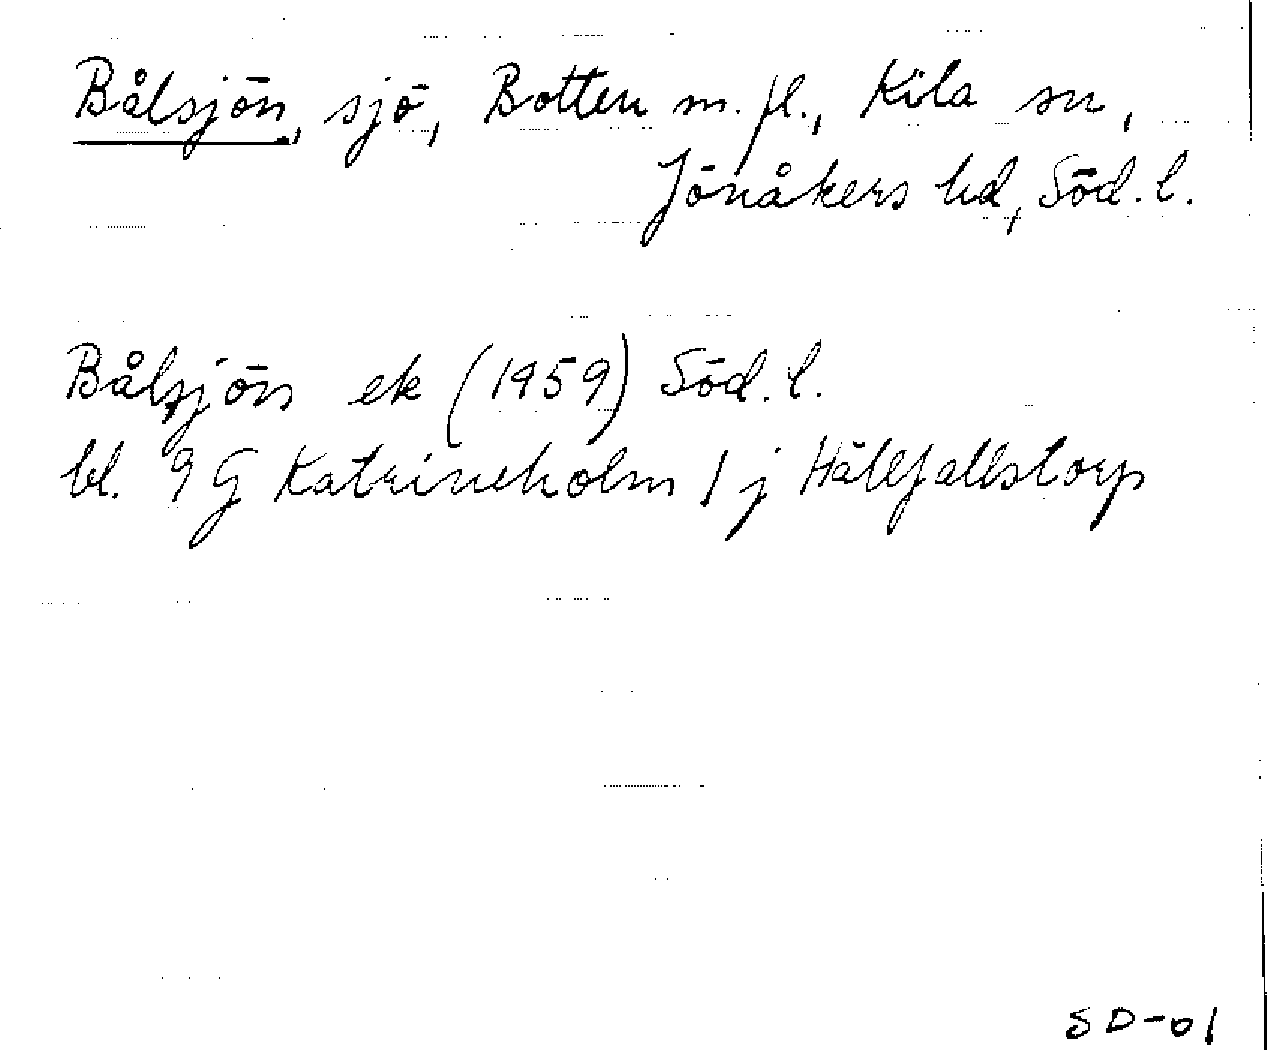 Bålsjön, sjö, Botten m.fl., Kila sn,
Jönåkers hd, Söd.l.
Bålsjön ek (1959) Söd.l.
bl. 9 G Katrineholm 1 j Hällfallstorp
SD-01